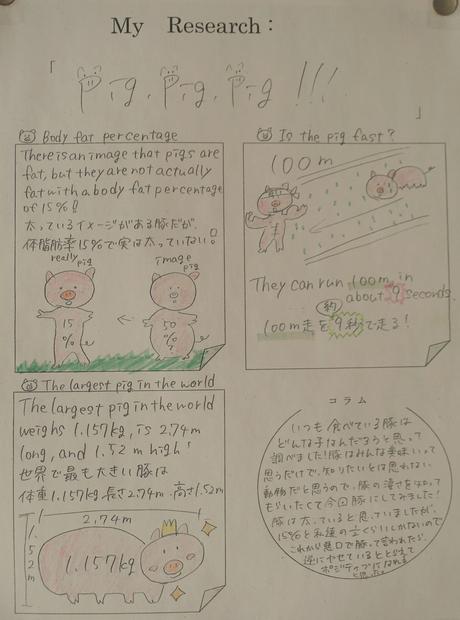 My Research:
「Pig, Pig, Pig !!!」
Body fat percentage
There is an image that pigs are
fat, but they are not actually
fat with a body fat percentage
of 15%!!
太っているイメージがある豚だが、
体脂肪率15%で実は太っていない!
really pig
image pig
15%
50%?
Is the pig fast?
100m
They can run 100m in
about 9 seconds.
100m走を(約)9秒で走る!
The largest pig in the world
The largest pig in the world
weighs 1.157kg, is 2.74m
long, and 1.52 m high!
世界で最も大きい豚は
体重1.157kg 長さ2.74m・高さ1.52m
2.74m
1.52m
1.157kg
コラム
いつも食べている豚は
どんな子なんだろうと思って
調べました!豚はみんな美味いって
思うだけで、知りたいとは思わない
動物だと思うので、豚の凄さを知って
もらいたくて今回豚にしてみました!
豚は太っていると思っていましたが、
15%と私達の立くらいしかないので
これから悪口で豚って言われたら、
逆にやせているととらえて
ポジティブになれる
と思った。